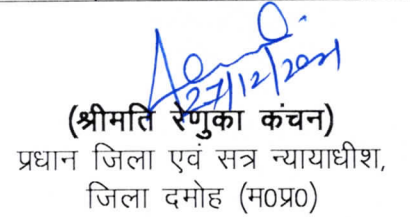 27/12/2021
(श्रीमति रेणुका कंचन)
प्रधान जिला एवं सत्र न्यायाधीश,
जिला दमोह (म0प्र0)